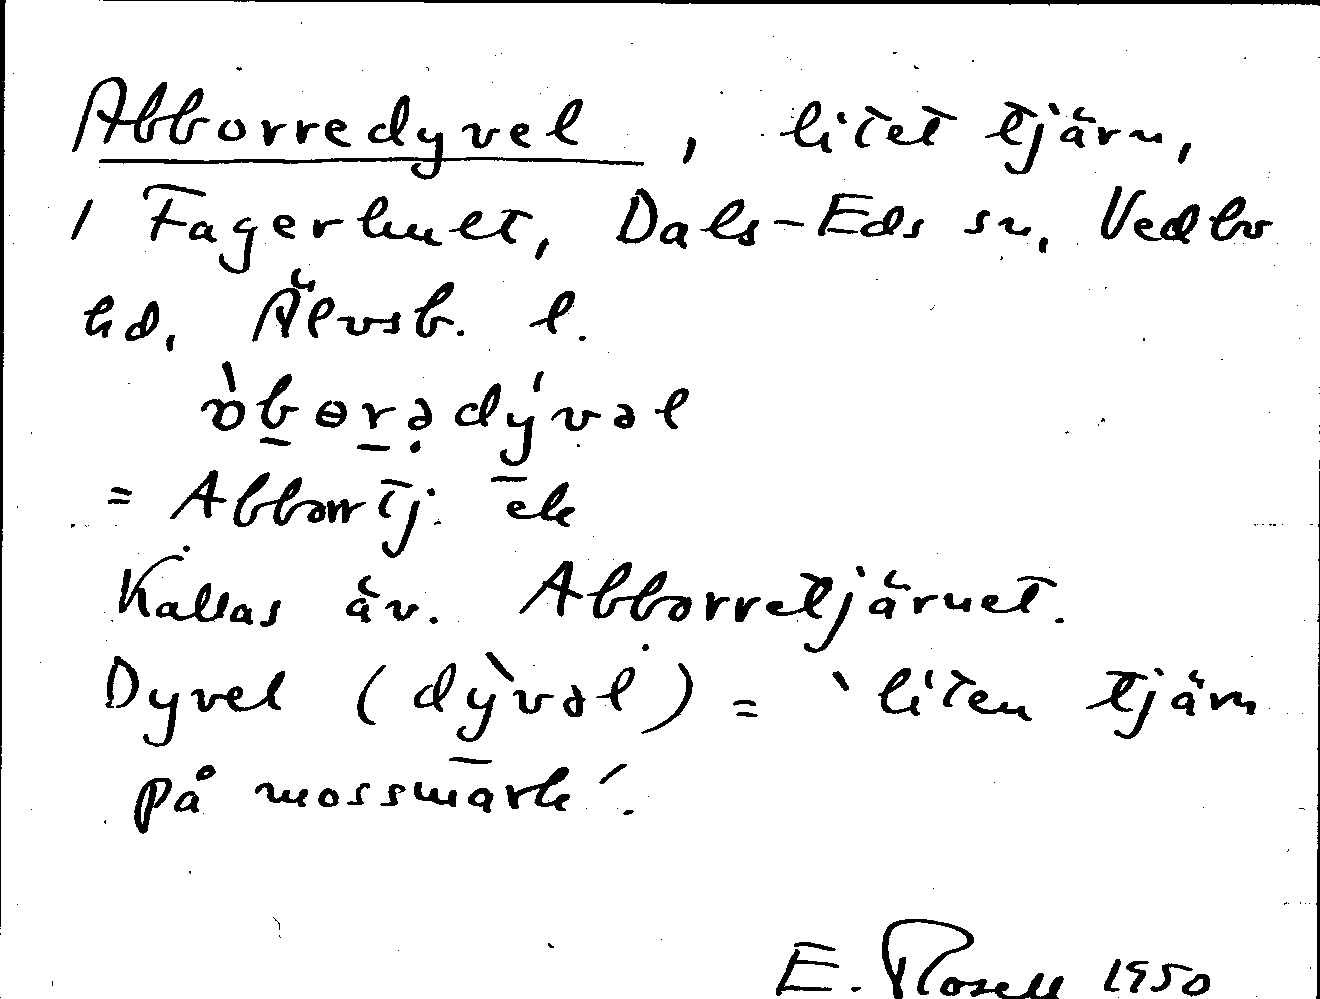 Abborredyvel, litet tjärn,
i Fagerhult, Dals-Eds sn, Vedbo
hd, Älvsb. l.
òbɵrədývəl
= Abborrtj. ek
Kallas äv. Abborretjärnet.
Dyvel (dỳvəl) = ‵liten tjärn
på mossmark′.
E. Rosell 1950